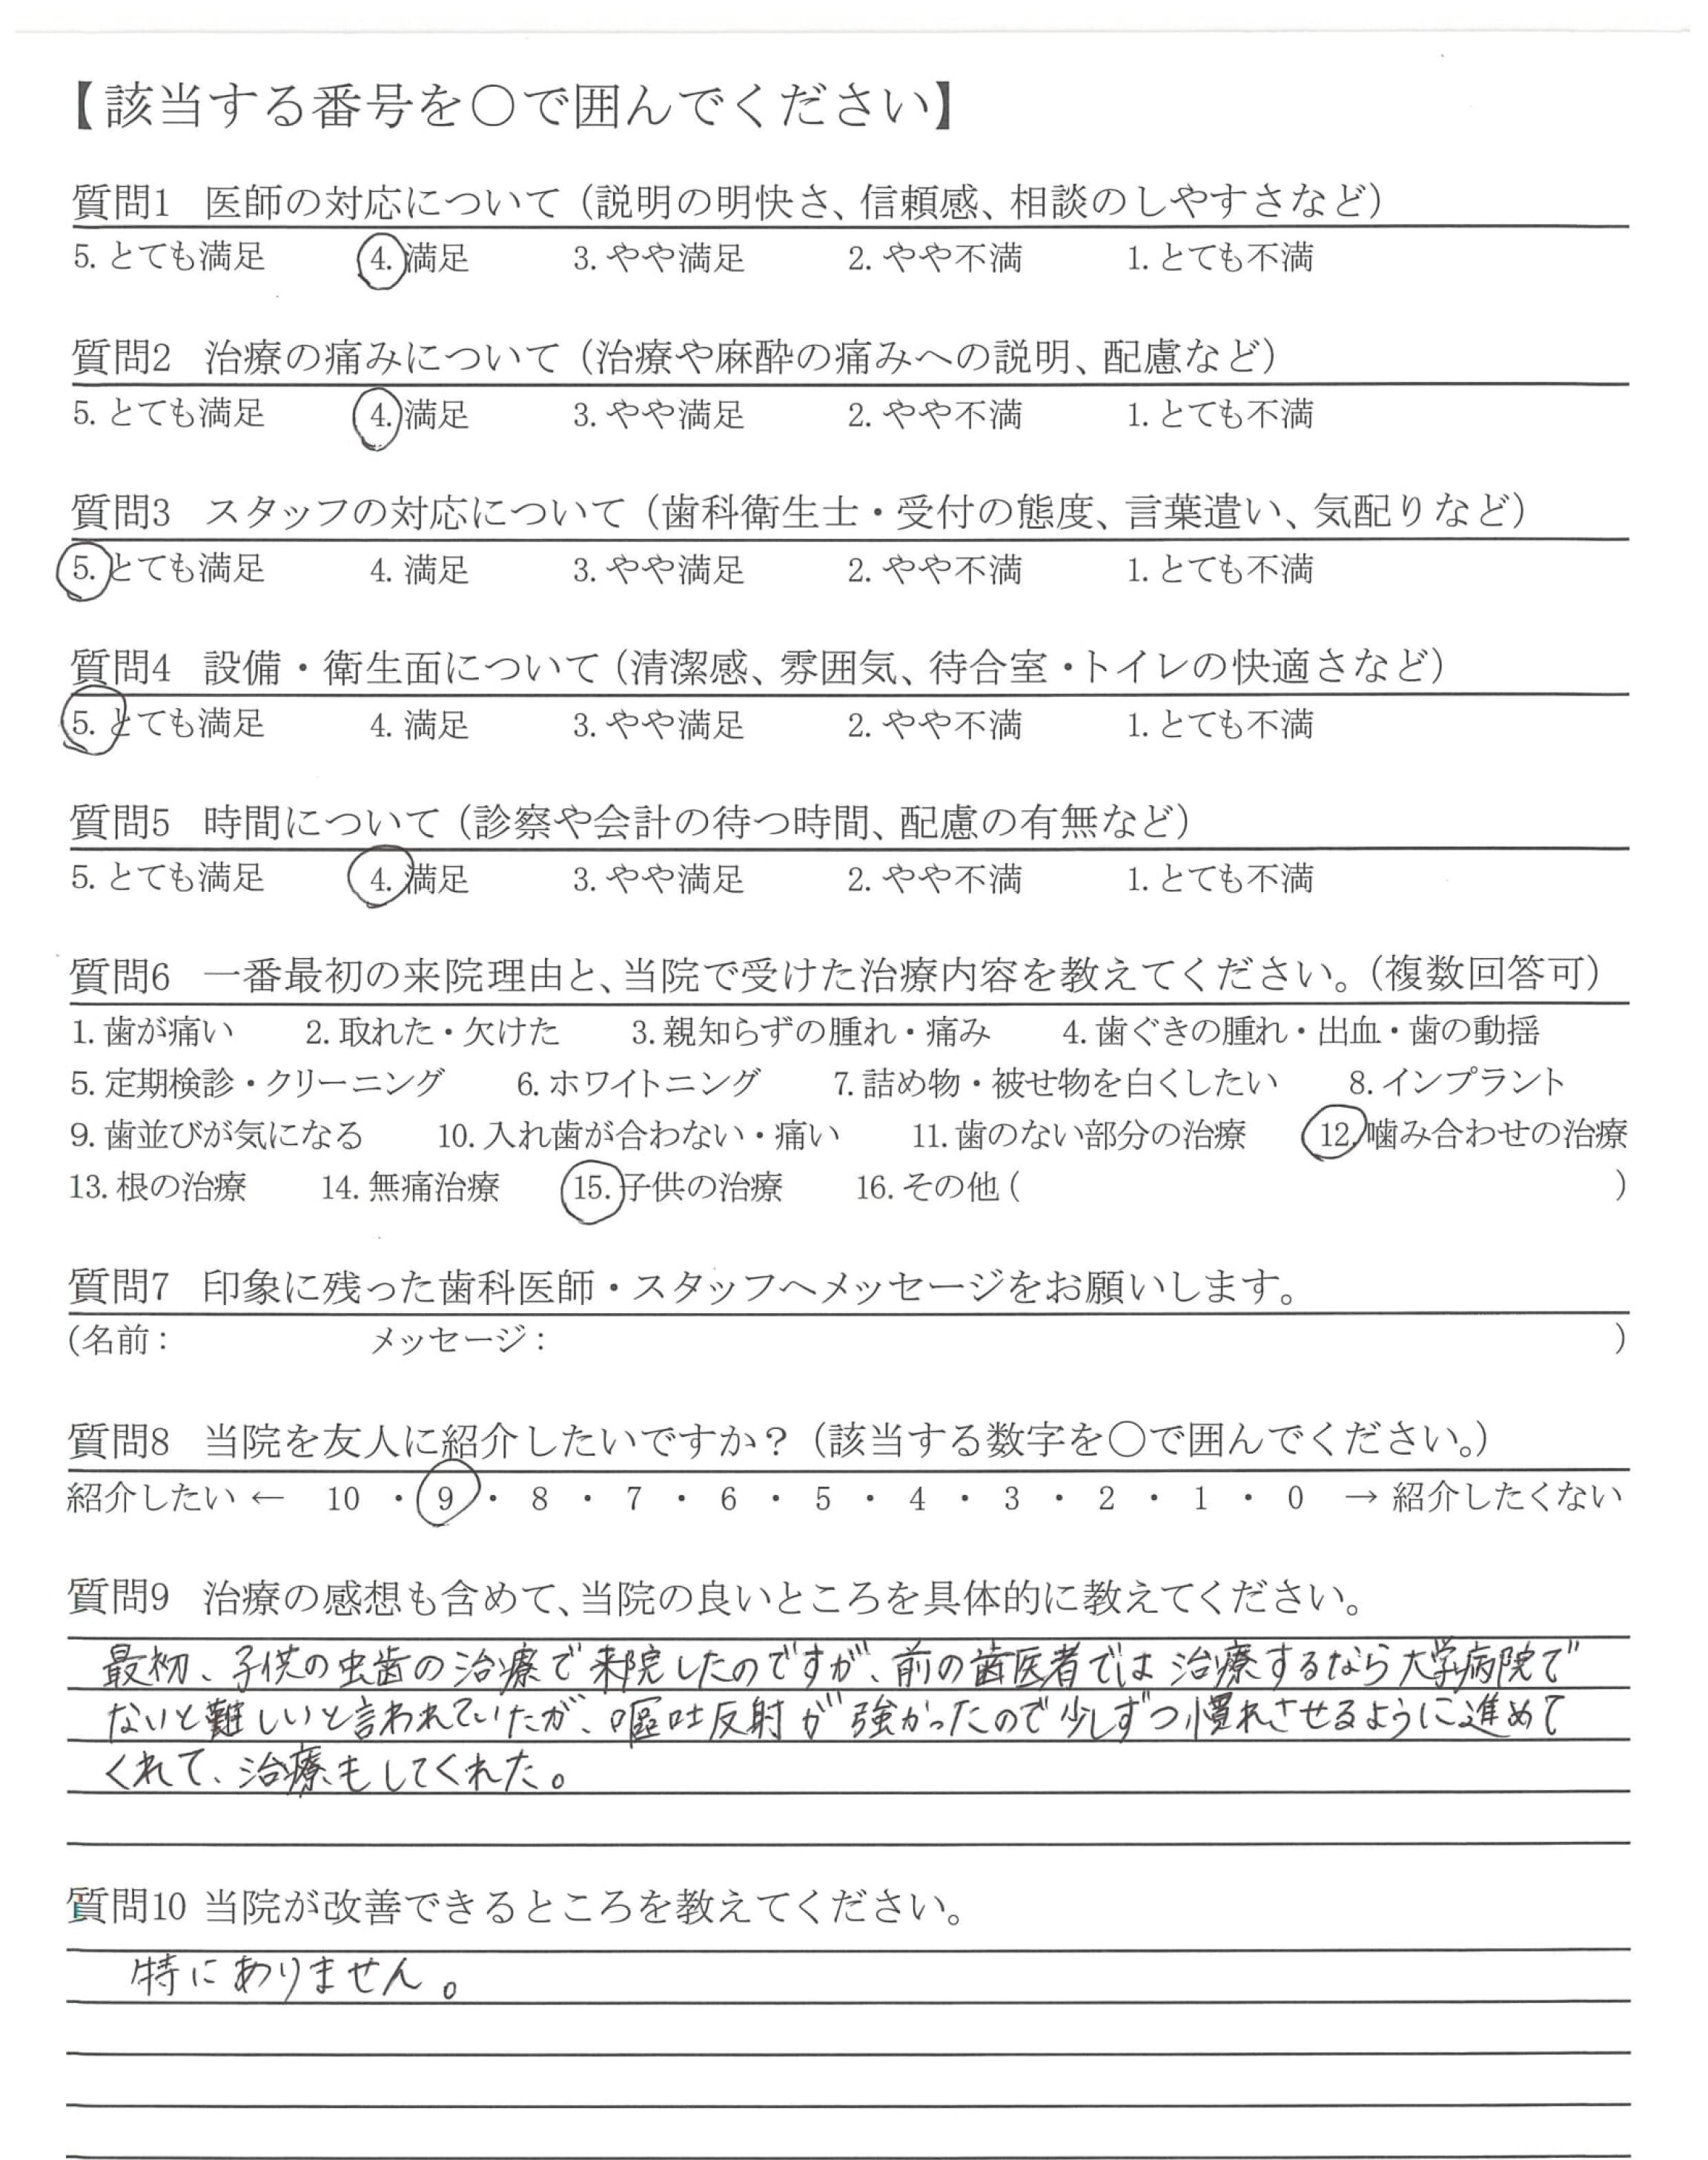 【該当する番号を○で囲んでください】
質問1 医師の対応について（説明の明快さ、信頼感、相談のしやすさなど）
5. とても満足 4. 満足 3. やや満足 2. やや不満 1. とても不満
質問2 治療の痛みについて（治療や麻酔の痛みへの説明、配慮など）
5. とても満足 4. 満足 3. やや満足 2. やや不満 1. とても不満
質問3 スタッフの対応について（歯科衛生士・受付の態度、言葉遣い、気配りなど）
5. とても満足 4. 満足 3. やや満足 2. やや不満 1. とても不満
質問4 設備・衛生面について（清潔感、雰囲気、待合室・トイレの快適さなど）
5. とても満足 4. 満足 3. やや満足 2. やや不満 1. とても不満
質問5 時間について（診察や会計の待つ時間、配慮の有無など）
5. とても満足 4. 満足 3. やや満足 2. やや不満 1. とても不満
質問6 一番最初の来院理由と、当院で受けた治療内容を教えてください。（複数回答可）
1. 歯が痛い 2. 取れた・欠けた 3. 親知らずの腫れ・痛み 4. 歯ぐきの腫れ・出血・歯の動揺
5. 定期検診・クリーニング 6. ホワイトニング 7. 詰め物・被せ物を白くしたい 8. インプラント
9. 歯並びが気になる 10. 入れ歯が合わない・痛い 11. 歯のない部分の治療 12. 噛み合わせの治療
13. 根の治療 14. 無痛治療 15. 子供の治療 16. その他（ ）
質問7 印象に残った歯科医師・スタッフへメッセージをお願いします。
（名前： メッセージ： ）
質問8 当院を友人に紹介したいですか？（該当する数字を○で囲んでください。）
紹介したい ← 10 ・ 9 ・ 8 ・ 7 ・ 6 ・ 5 ・ 4 ・ 3 ・ 2 ・ 1 ・ 0 → 紹介したくない
質問9 治療の感想も含めて、当院の良いところを具体的に教えてください。
最初、子供の虫歯の治療で来院したのですが、前の歯医者では治療するなら大学病院で
ないと難しいと言われていたが、嘔吐反射が強かったので少しずつ慣れさせるように進めて
くれて、治療もしてくれた。
質問10 当院が改善できるところを教えてください。
特にありません。